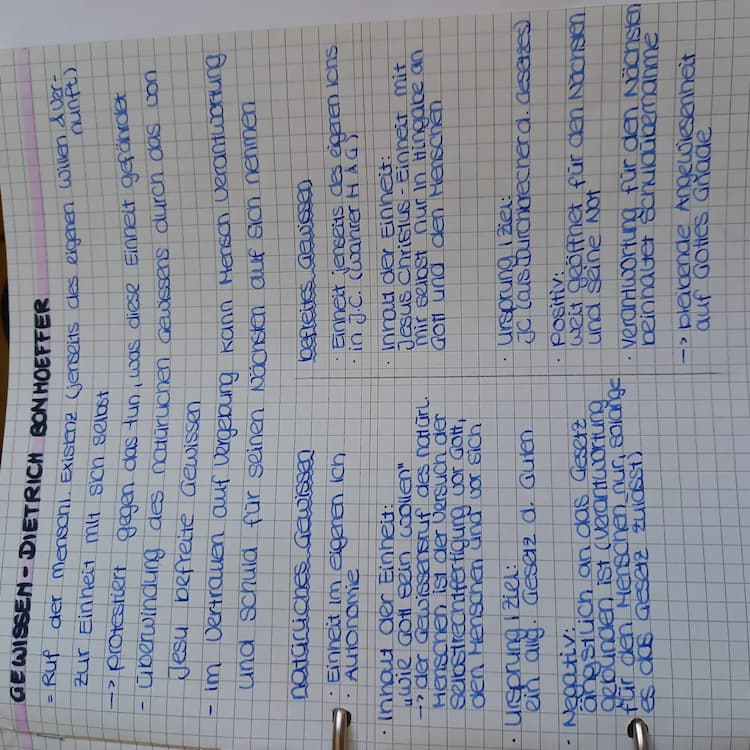 GEWISSEN - DIETRICH BONHOEFFER
= Ruf der menschl. Existenz (jenseits des eigenen Willen & Ver-
nunft)
zur Einheit mit sich selbst
-> protestiert gegen das tun, was diese Einheit gefährdet
- Überwindung des natürlichen Gewissens durch das von
Jesu befreite Gewissen
- Im Vertrauen auf Vergebung kann Mensch Verantwortung
und Schuld für seinen Nächsten auf sich nehmen
natürliches Gewissen
· Einheit im eigenen Ich
· Autonomie
· Inhalt der Einheit:
"wie Gott sein wollen"
-> der Gewissensruf des natürl.
Menschen ist der Versuch der
Selbstrechtfertigung vor Gott,
den Menschen und vor sich
· Ursprung / Ziel:
ein allg. Gesetz d. Guten
· Negativ:
ängstlich an das Gesetz
gebunden ist (Verantwortung
für den Menschen nur, solange
es das Gesetz zulässt)
befreites Gewissen
· Einheit jenseits des eigenen Ichs
in J.C. (wahrer M & G)
· Inhalt der Einheit:
Jesus Christus - Einheit mit
mir selbst nur in Hingabe an
Gott und den Menschen
· Ursprung / Ziel:
JC (als Durchbrecher d. Gesetzes)
· Positiv:
weit geöffnet für den Nächsten
und seine Not
· Verantwortung für den Nächsten
beinhaltet Schuldübernahme
-> bleibende Angewiesenheit
auf Gottes Gnade